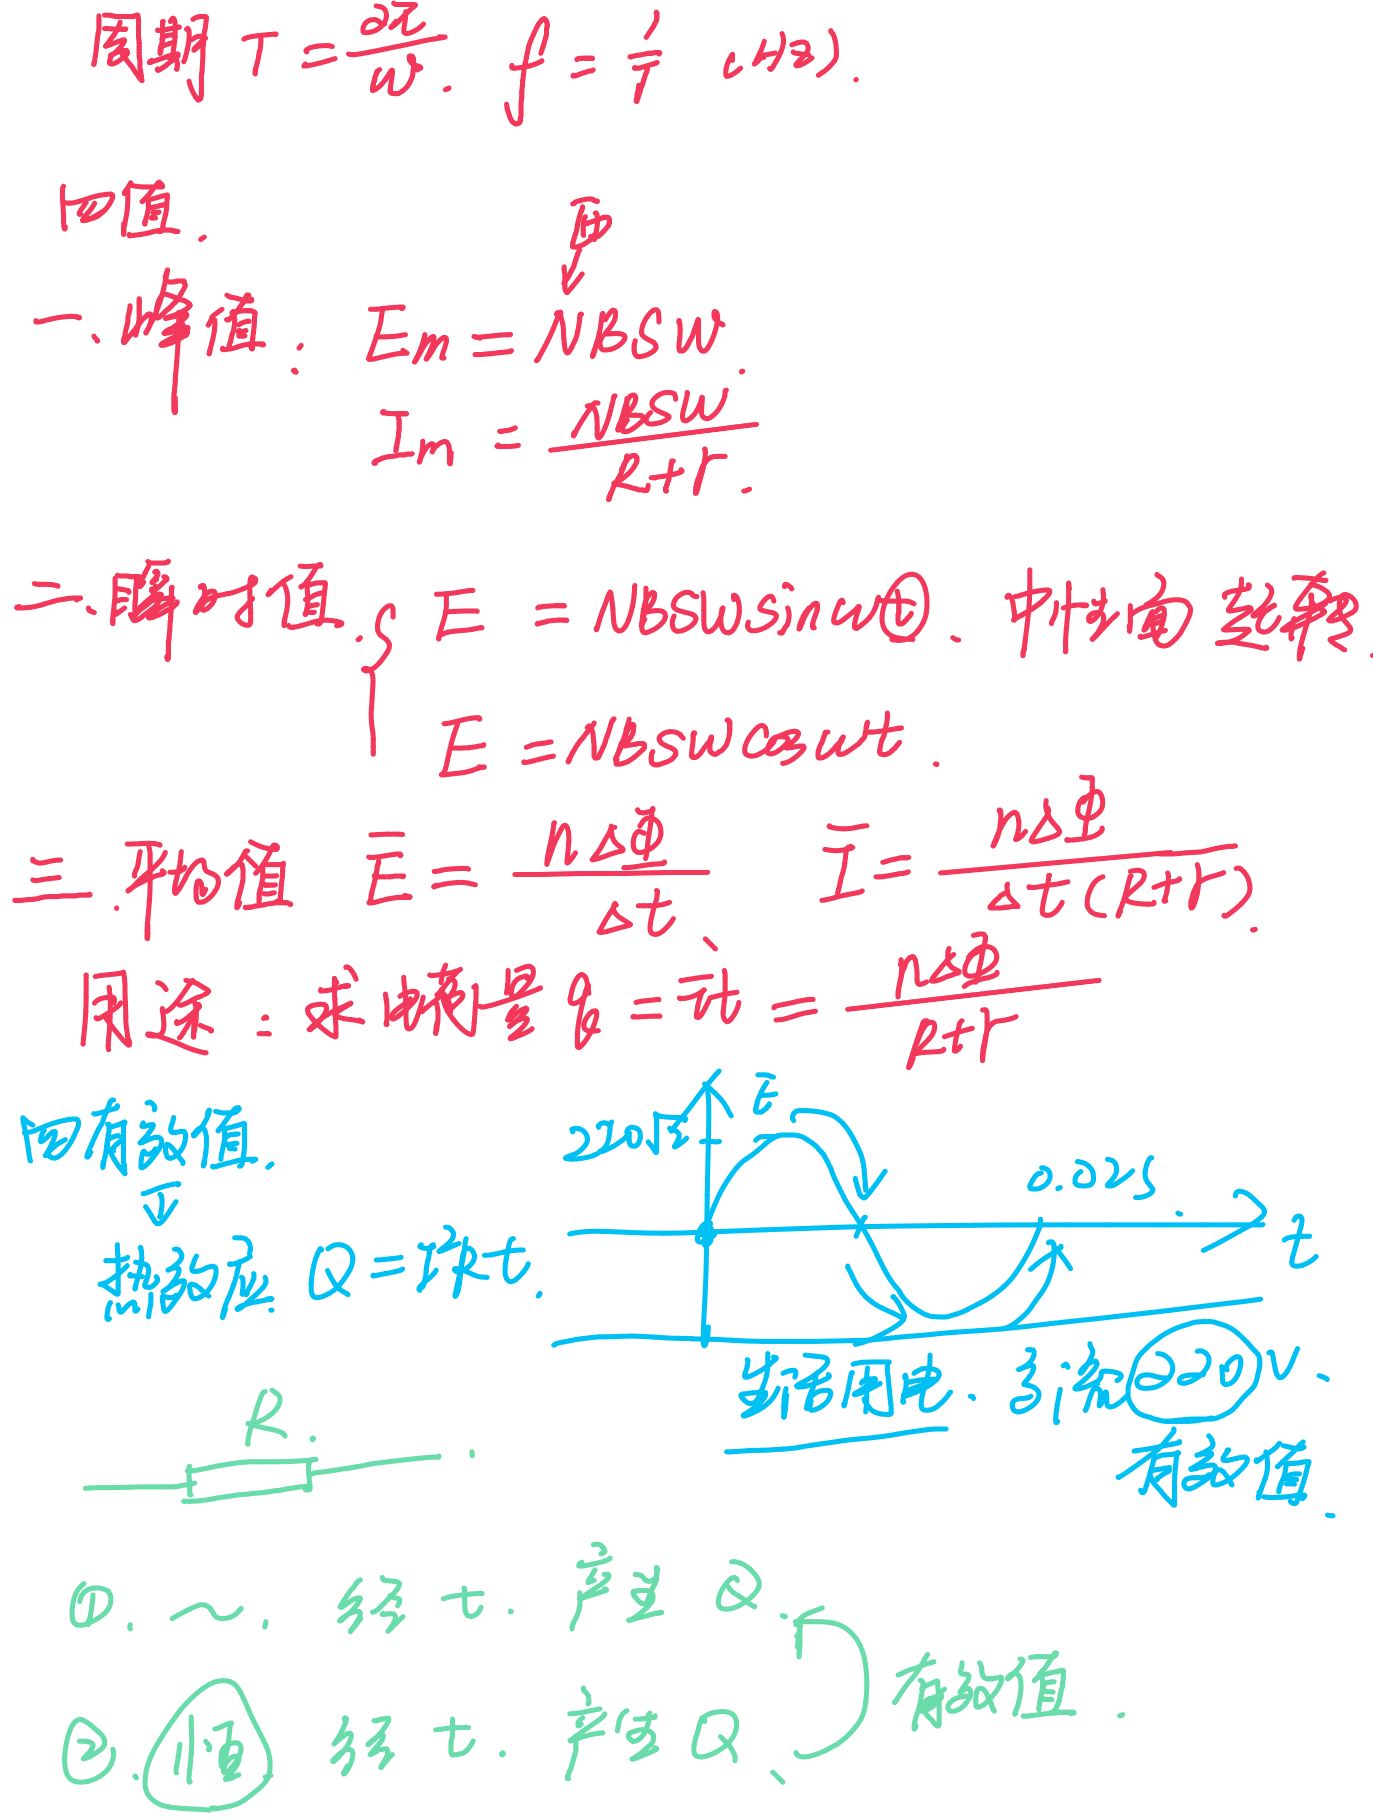 周期 T = 2π/ω. f = 1/T (Hz).
四值.
匝
一、峰值: Em = NBSW.
Im = NBSW/R+r.
二、瞬时值. { E = NBSWsinωt、中性面起转.
E = NBSWcosωt.
三.平均值 E̅ = nΔΦ/Δt、 I̅ = nΔΦ/Δt(R+r).
用途: 求电荷量 q = I̅t = nΔΦ/R+r
四有效值.
热效应. Q = I²Rt.
E
220√2
0.02s.
t
生活用电. 交流220V.
有效值.
R.
①. ~. 经 t. 产生 Q.
有效值.
②. 恒 经 t. 产生 Q、